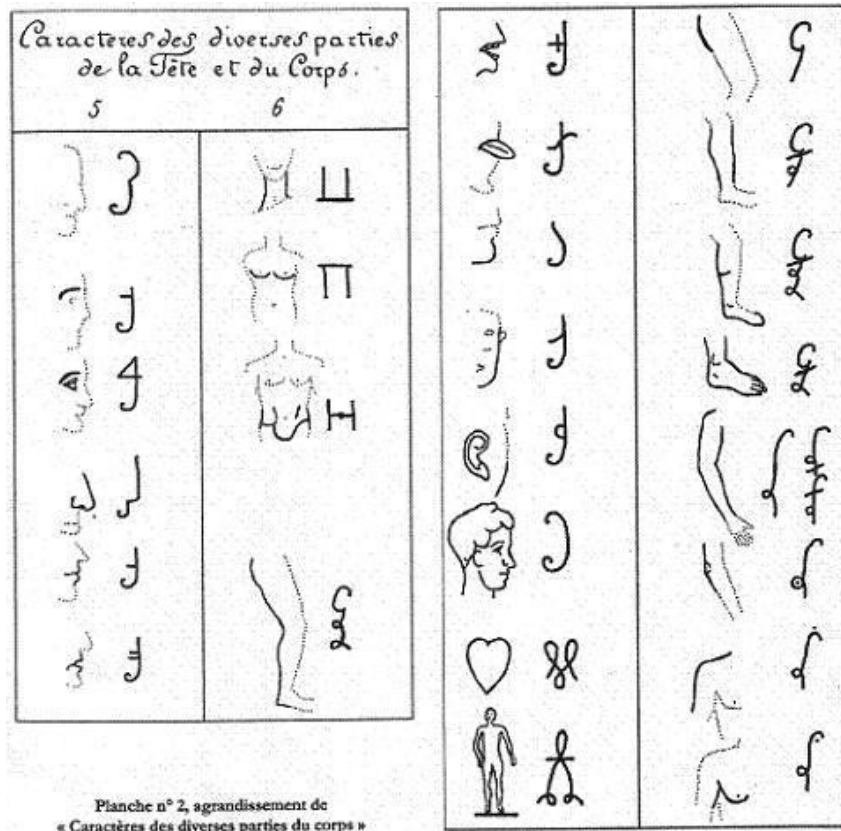 Caracteres des diverses parties
de la Tête et du Corps.
5 6
Planche n° 2, agrandissement de
« Caractères des diverses parties du corps »